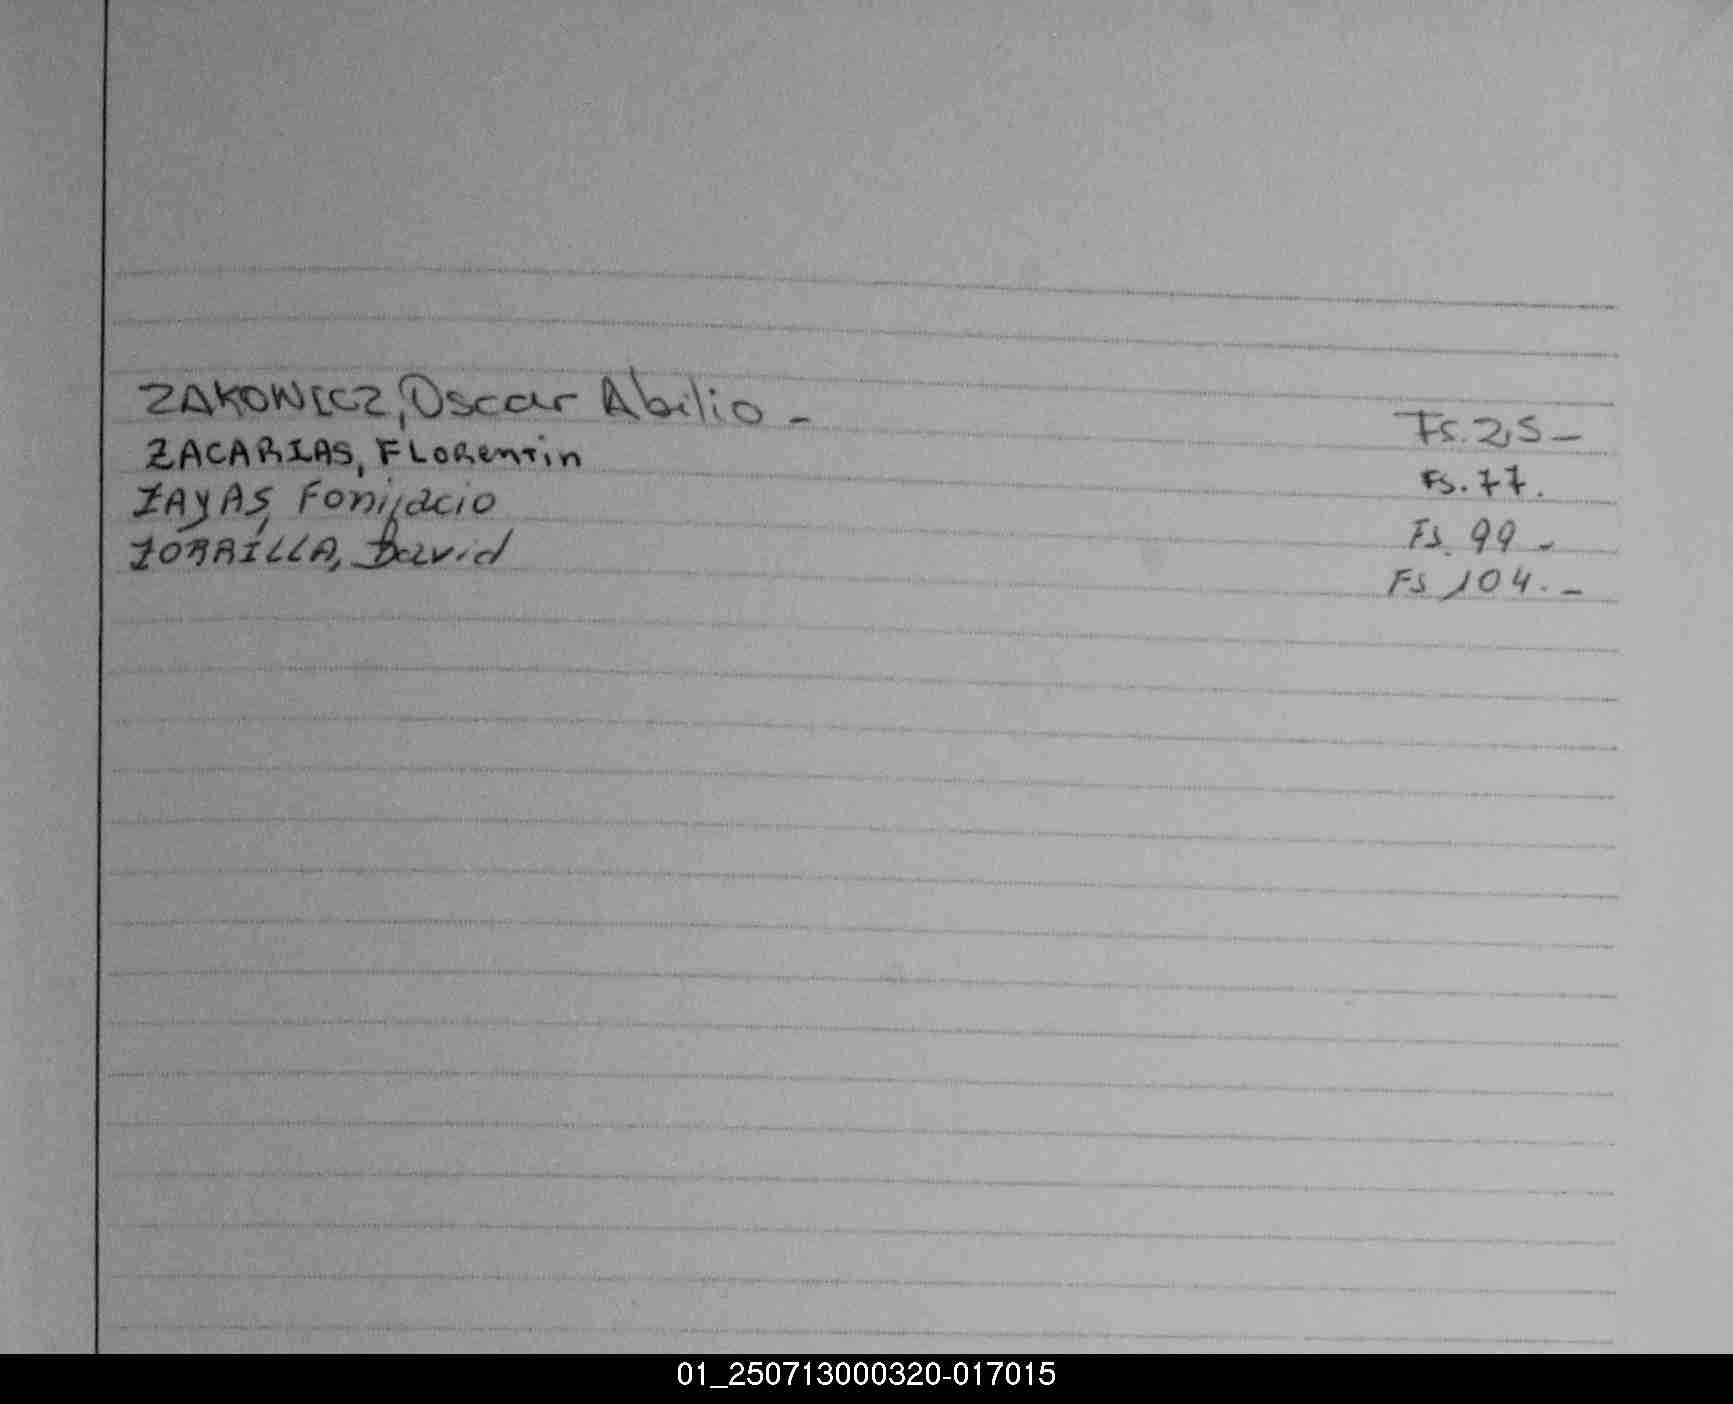 ZAKOWICZ, Oscar Abilio - Fs. 25 -
ZACARIAS, FLORentin Fs. 77.
ZAYAS, Fonifacio Fs. 99 -
ZORRILLA, David Fs 104. -
01_250713000320-017015